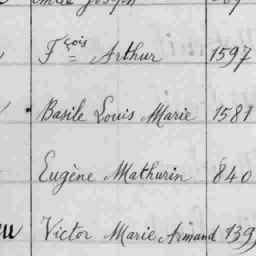 Joseph
Fçois = Arthur 1597
Basile Louis Marie 1581
Eugène Mathurin 840
Victor Marie Armand 139